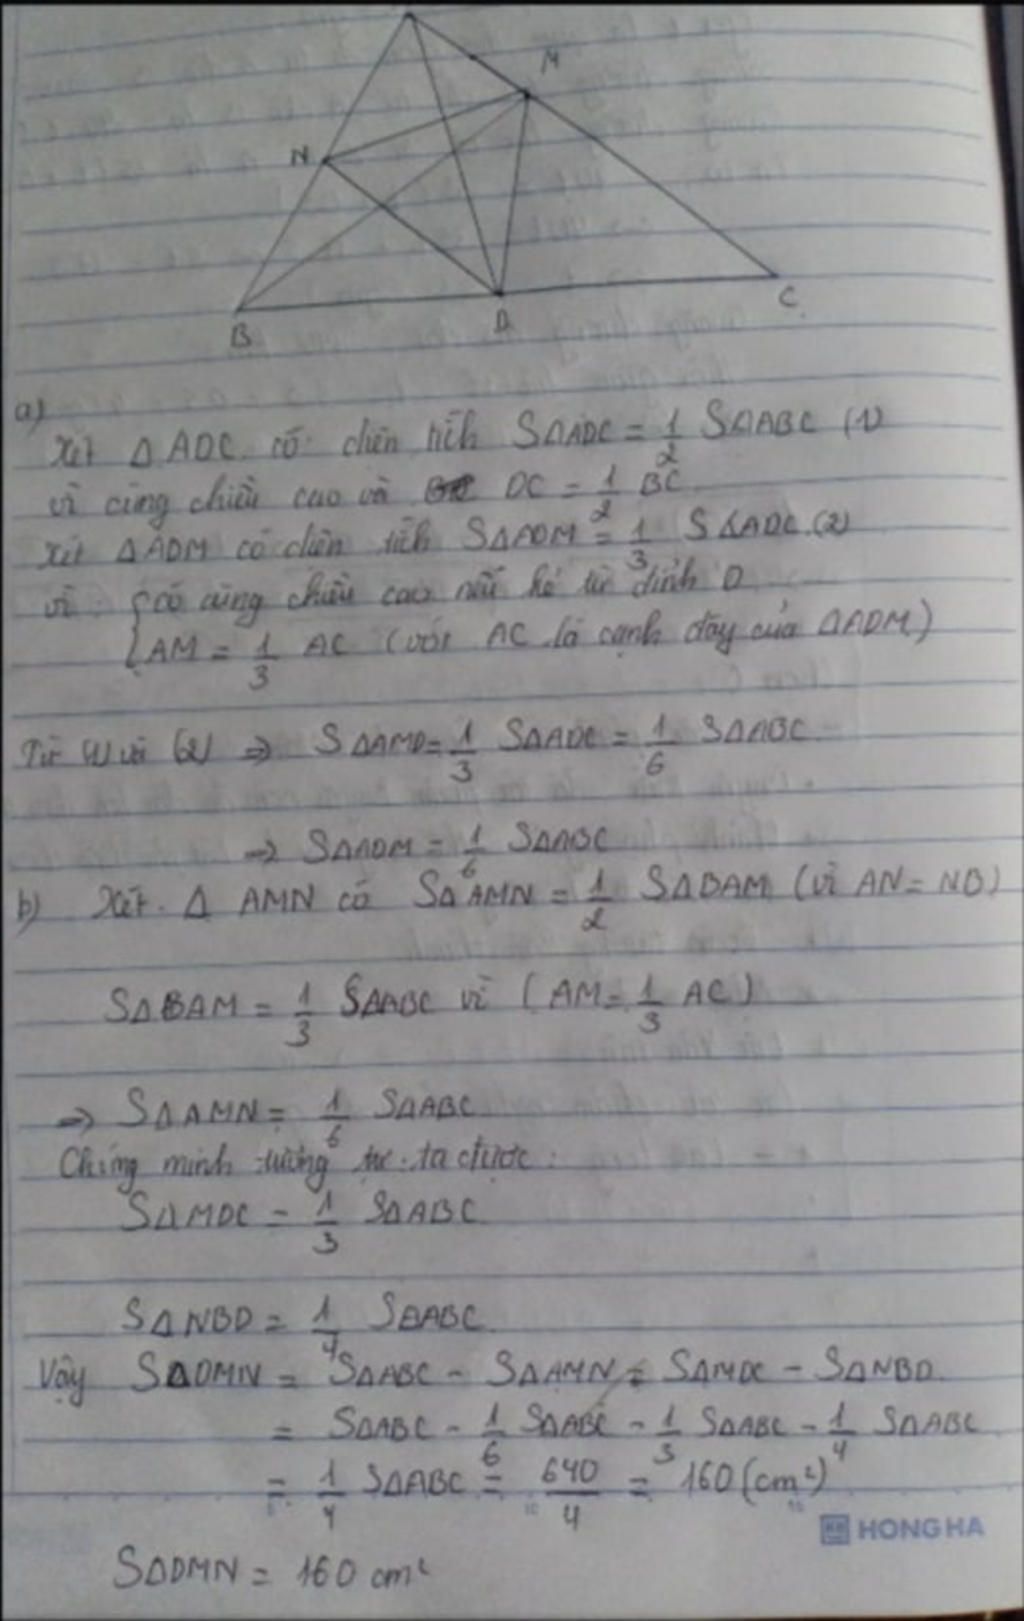 M
N
B
D
C
a)
Xét Δ ADC có diện tích SΔADC = 1/2 SΔABC (1)
vì cùng chiều cao và DC = 1/2 BC
Xét ΔADM có diện tích SΔADM = 1/3 SΔADC (2)
vì: { có cùng chiều cao nếu kẻ từ đỉnh D
AM = 1/3 AC (với AC là cạnh đáy của ΔADM)
Từ (1) và (2) ⇒ SΔAMD = 1/3 SΔADC = 1/6 SΔABC
⇒ SΔADM = 1/6 SΔABC
b) Xét Δ AMN có SΔAMN = 1/2 SΔBAM (vì AN = NB)
SΔBAM = 1/3 SΔABC vì (AM = 1/3 AC)
⇒ SΔAMN = 1/6 SΔABC
Chứng minh tương tự ta được:
SΔMDC = 1/3 SΔABC
SΔNBD = 1/4 SΔABC
Vậy SΔDMN = SΔABC - SΔAMN - SΔMDC - SΔNBD
= SΔABC - 1/6 SΔABC - 1/3 SΔABC - 1/4 SΔABC
= 1/4 SΔABC = 640/4 = 160 (cm²)
HONG HA
SΔDMN = 160 cm²